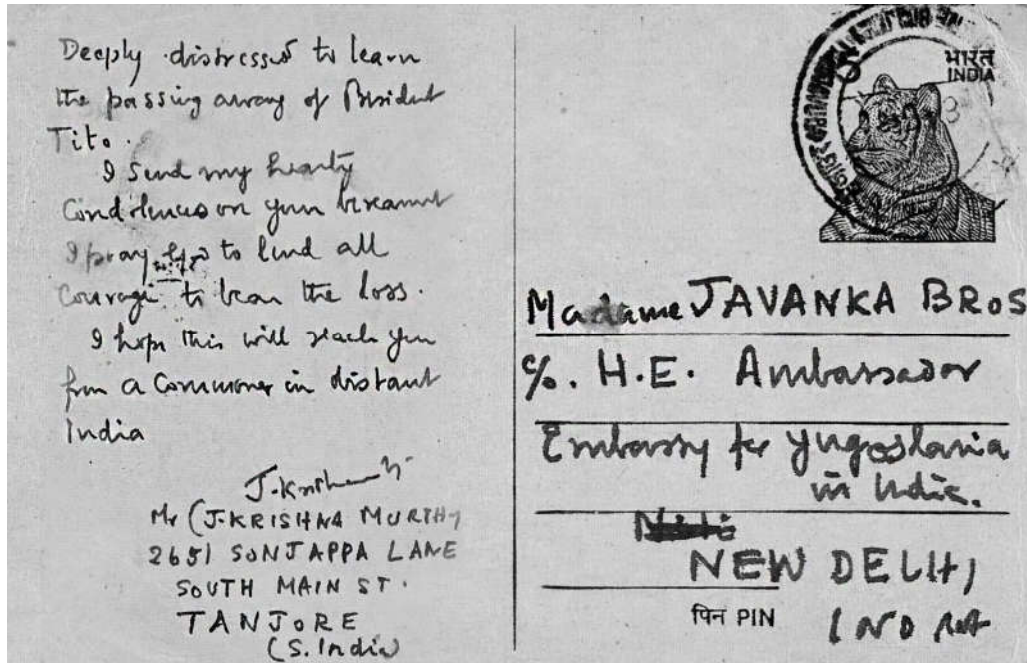 Deeply distressed to learn
the passing away of President
Tito.
I send my hearty
Condolences on your bereavement
I pray to lend all
Courage to bear the loss.
I hope this will reach you
from a Commoner in distant
India
J. Krishnamurthy
Mr (J. KRISHNA MURTHY
2651 SUNJAPPA LANE
SOUTH MAIN ST.
TANJORE
(S. India)
भारत
INDIA
Madame JAVANKA BROS
c/o. H.E. Ambassador
Embassy for Yugoslavia
in India.
NEW DELHI
पिन PIN
INDIA